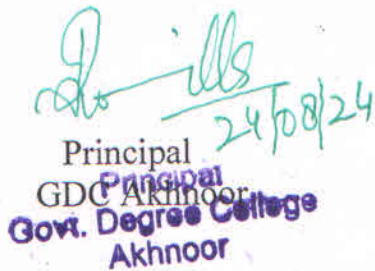 24/08/24
Principal
GDC Akhnoor
Principal
Govt. Degree College
Akhnoor